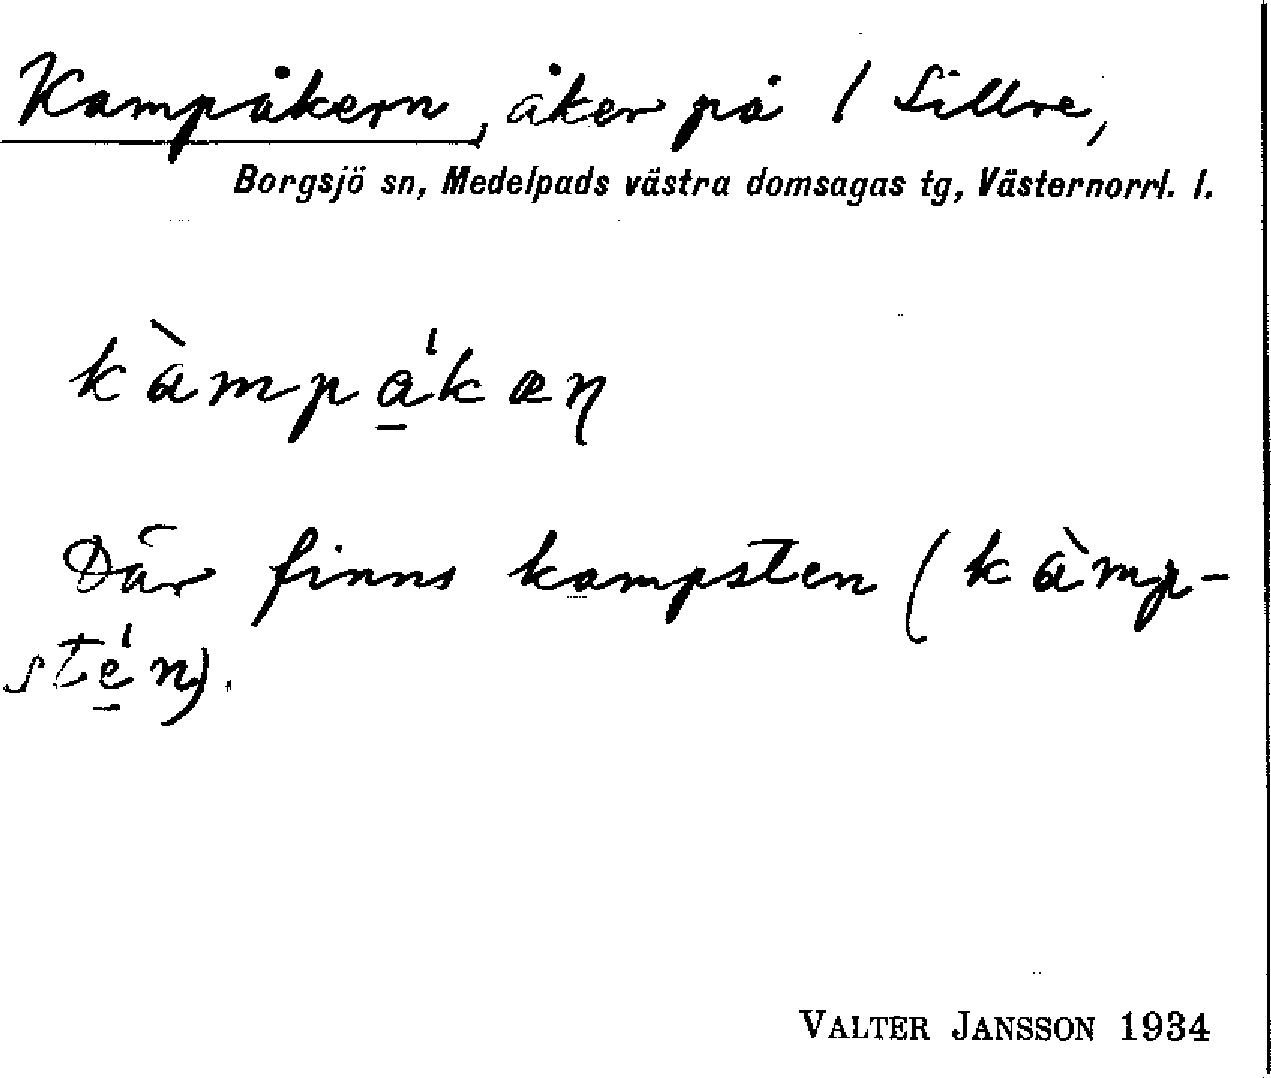 Kampåkern, åker på 1 Sillre,
Borgsjö sn, Medelpads västra domsagas tg, Västernorrl. l.
kàmpa̱ˈkæɳ
Där finns kampsten (kàmp-
ste̱ˈn).
VALTER JANSSON 1934